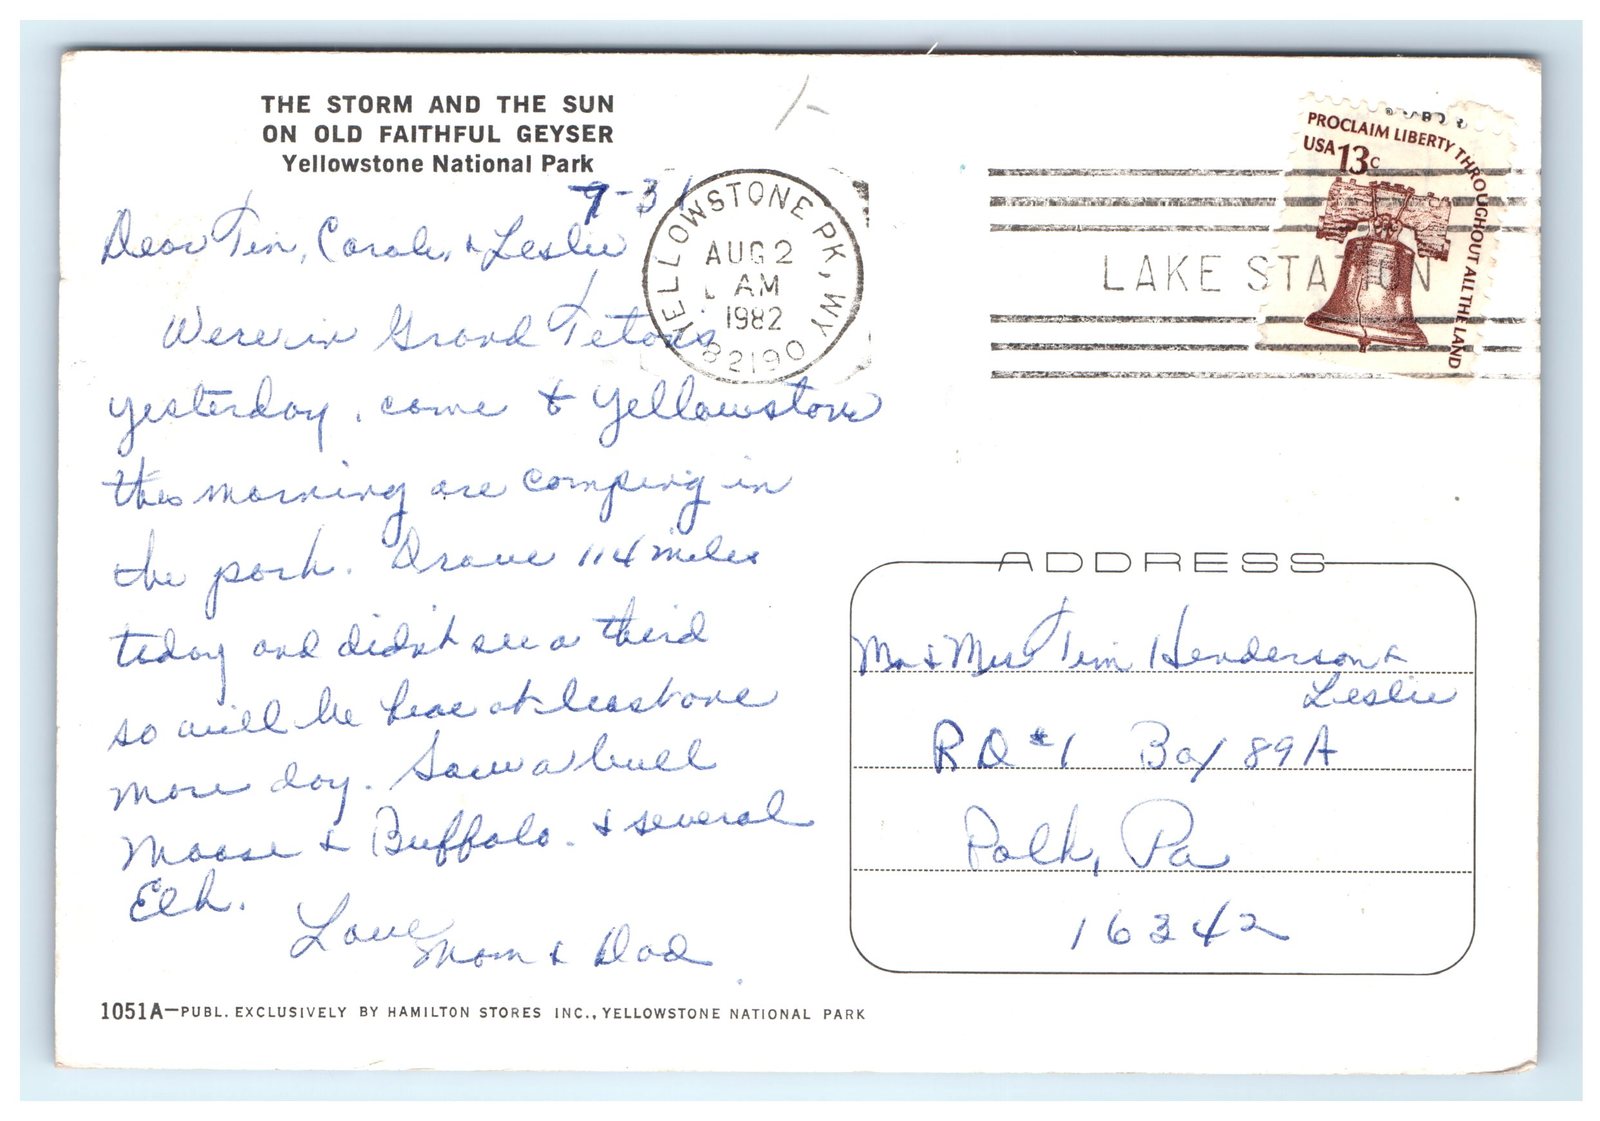 THE STORM AND THE SUN
ON OLD FAITHFUL GEYSER
Yellowstone National Park
7-31
Dear Tim, Carole, & Leslie
Were in Grand Tetons
yesterday, come to Yellowstone
this morning are camping in
the park. Drove 114 miles
today and didn't see a third
so will be here at least one
more day. Saw a bull
Moose & Buffalo. & several
Elk.
Love
Mom & Dad
1051A—PUBL. EXCLUSIVELY BY HAMILTON STORES INC., YELLOWSTONE NATIONAL PARK
YELLOWSTONE PK, WY
AUG 2
AM
1982
82190
LAKE STATION
PROCLAIM LIBERTY THROUGHOUT ALL THE LAND
USA 13c
ADDRESS
Mr & Mrs Tim Henderson &
Leslie
RD #1 Box 89A
Polk, Pa
16342